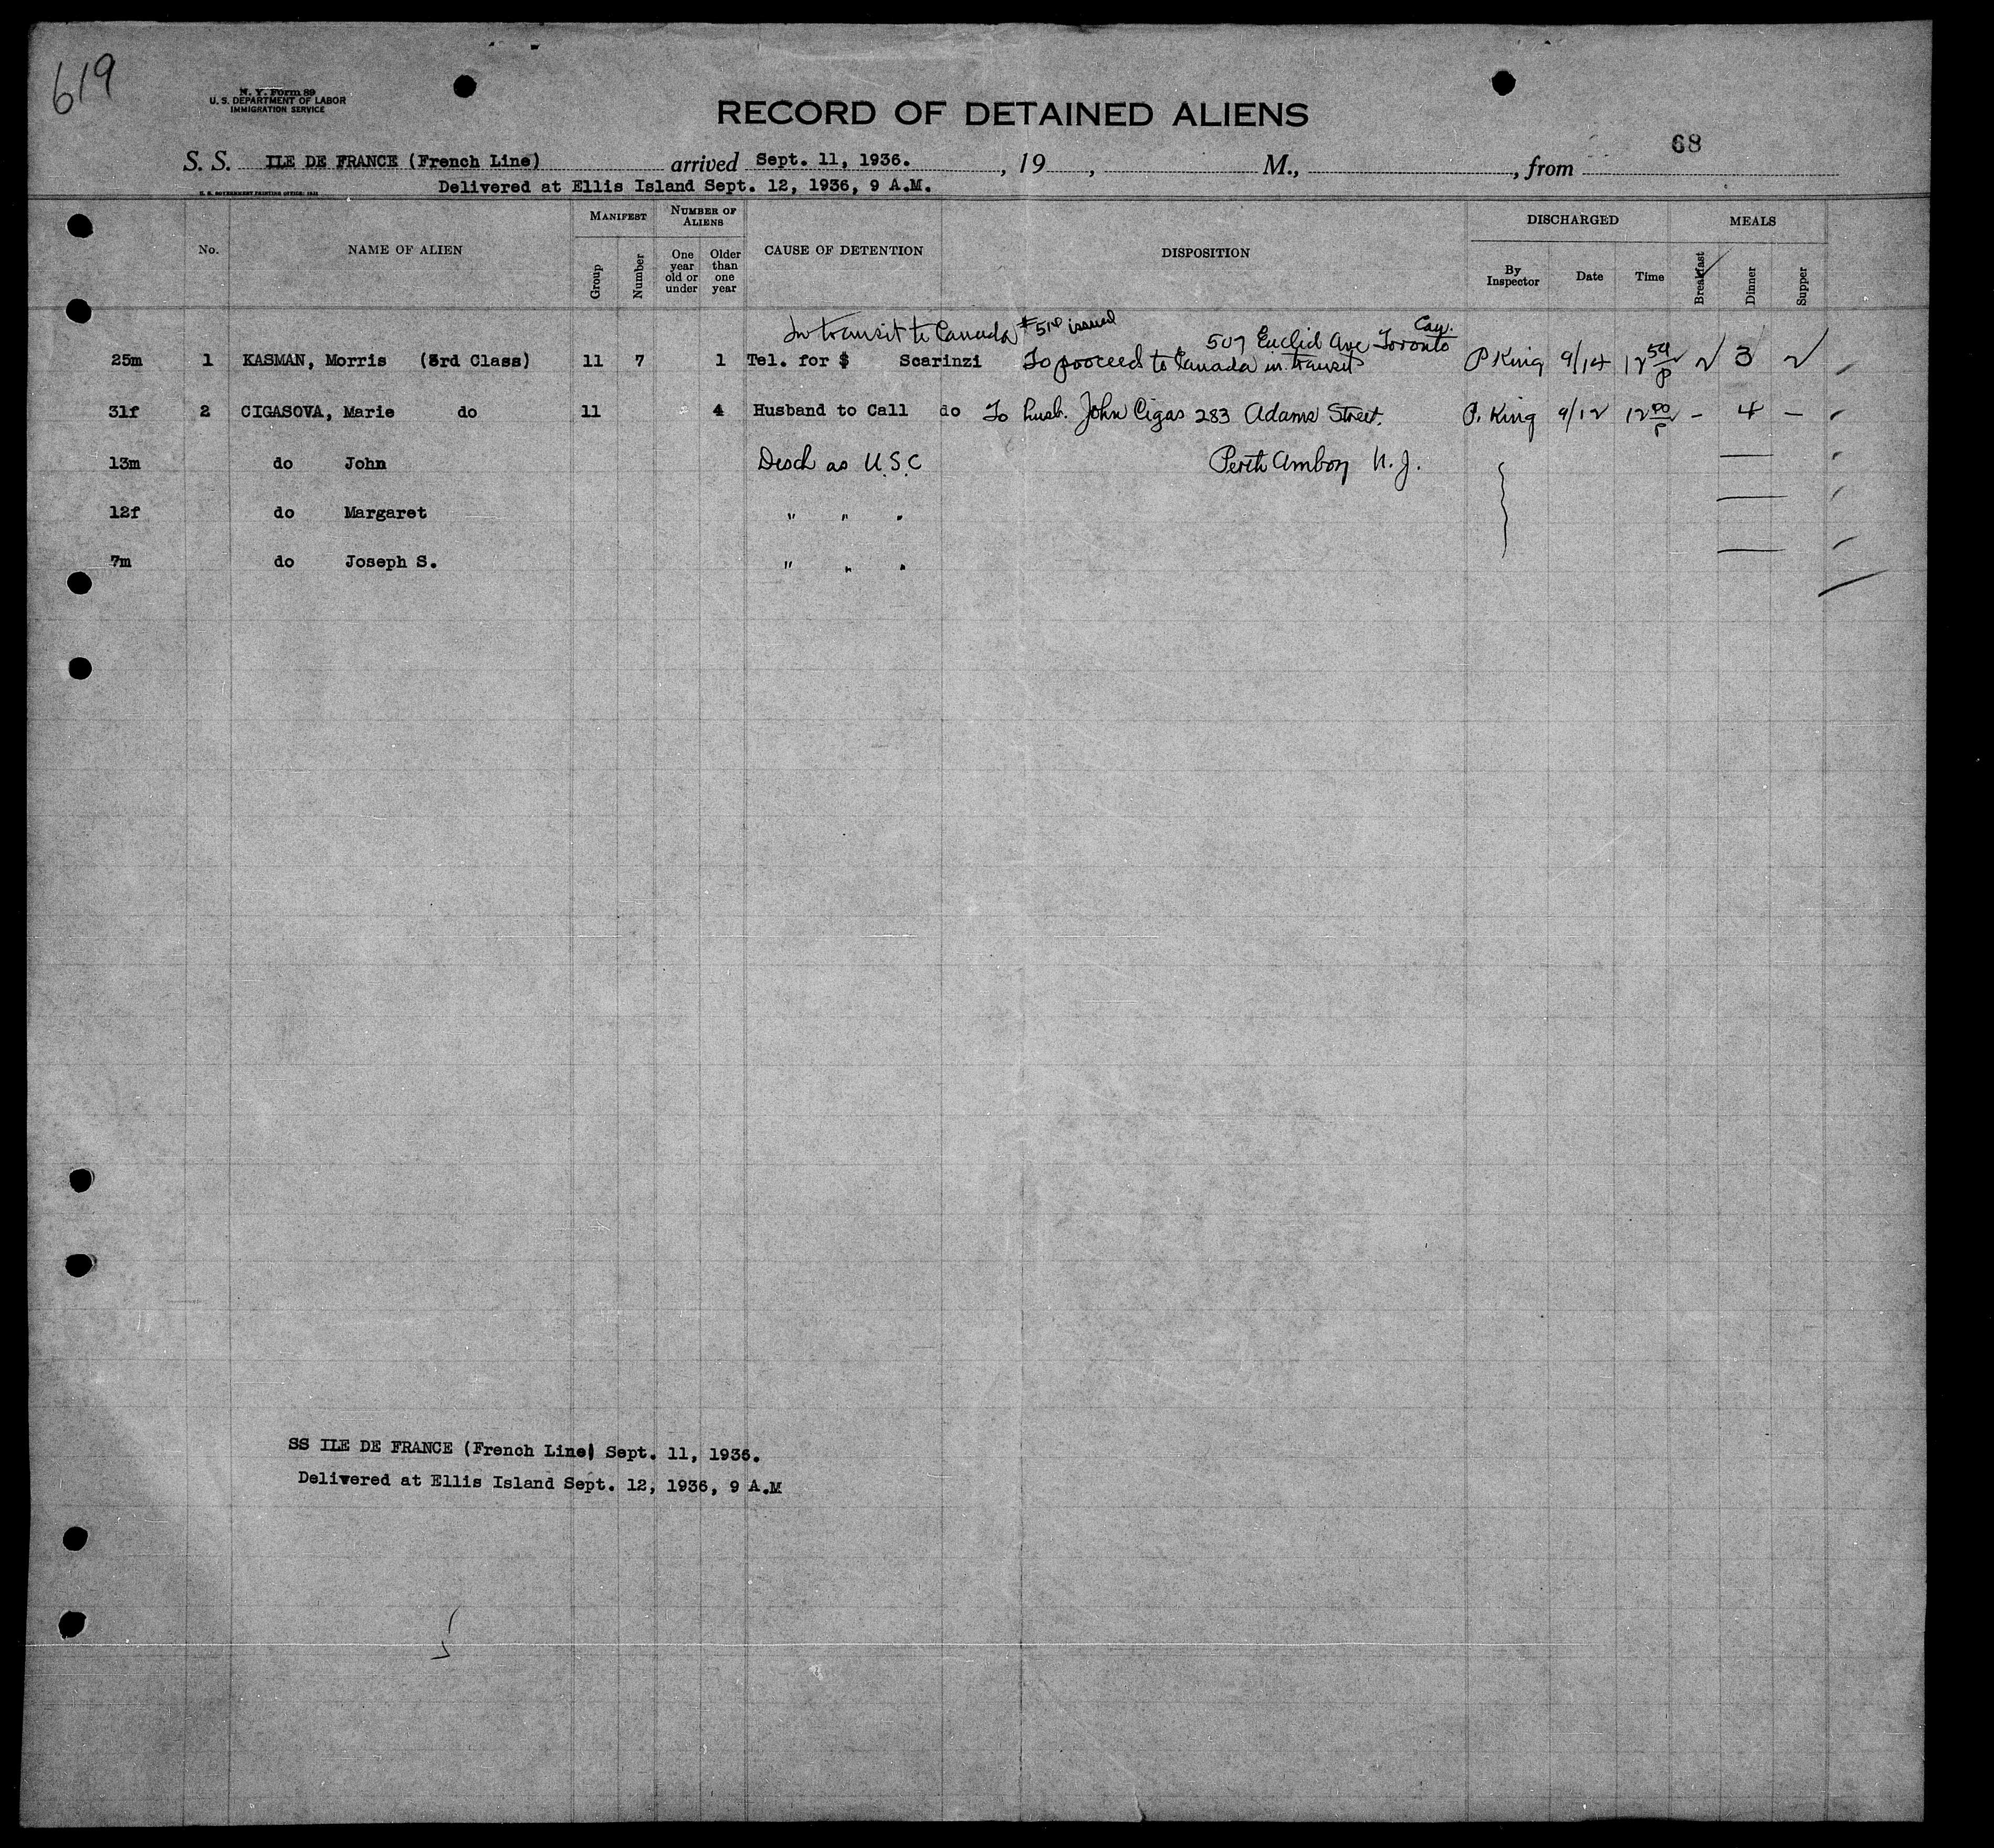 619
N. Y. Form 89
U. S. DEPARTMENT OF LABOR
IMMIGRATION SERVICE
RECORD OF DETAINED ALIENS
68
S. S. ILE DE FRANCE (French Line) arrived Sept. 11, 1936. , 19 , M., , from
Delivered at Ellis Island Sept. 12, 1936, 9 A.M.
No. NAME OF ALIEN MANIFEST Group Number NUMBER OF ALIENS One year old or under Older than one year CAUSE OF DETENTION DISPOSITION DISCHARGED By Inspector Date Time MEALS Breakfast Dinner Supper
In transit to Canada #519 issued 507 Euclid Ave Toronto Can.
25m 1 KASMAN, Morris (3rd Class) 11 7 1 Tel. for $ Scarinzi To proceed to Canada in transit P King 9/14 12 59 P 2 3 2
31f 2 CIGASOVA, Marie do 11 4 Husband to Call do To husb. John Cigas 283 Adams Street. P. King 9/12 12 00 P - 4 -
13m do John Desch as U.S.C Perth Amboy N.J.
12f do Margaret " " "
7m do Joseph S. " " "
SS ILE DE FRANCE (French Line) Sept. 11, 1936.
Delivered at Ellis Island Sept. 12, 1936, 9 A.M